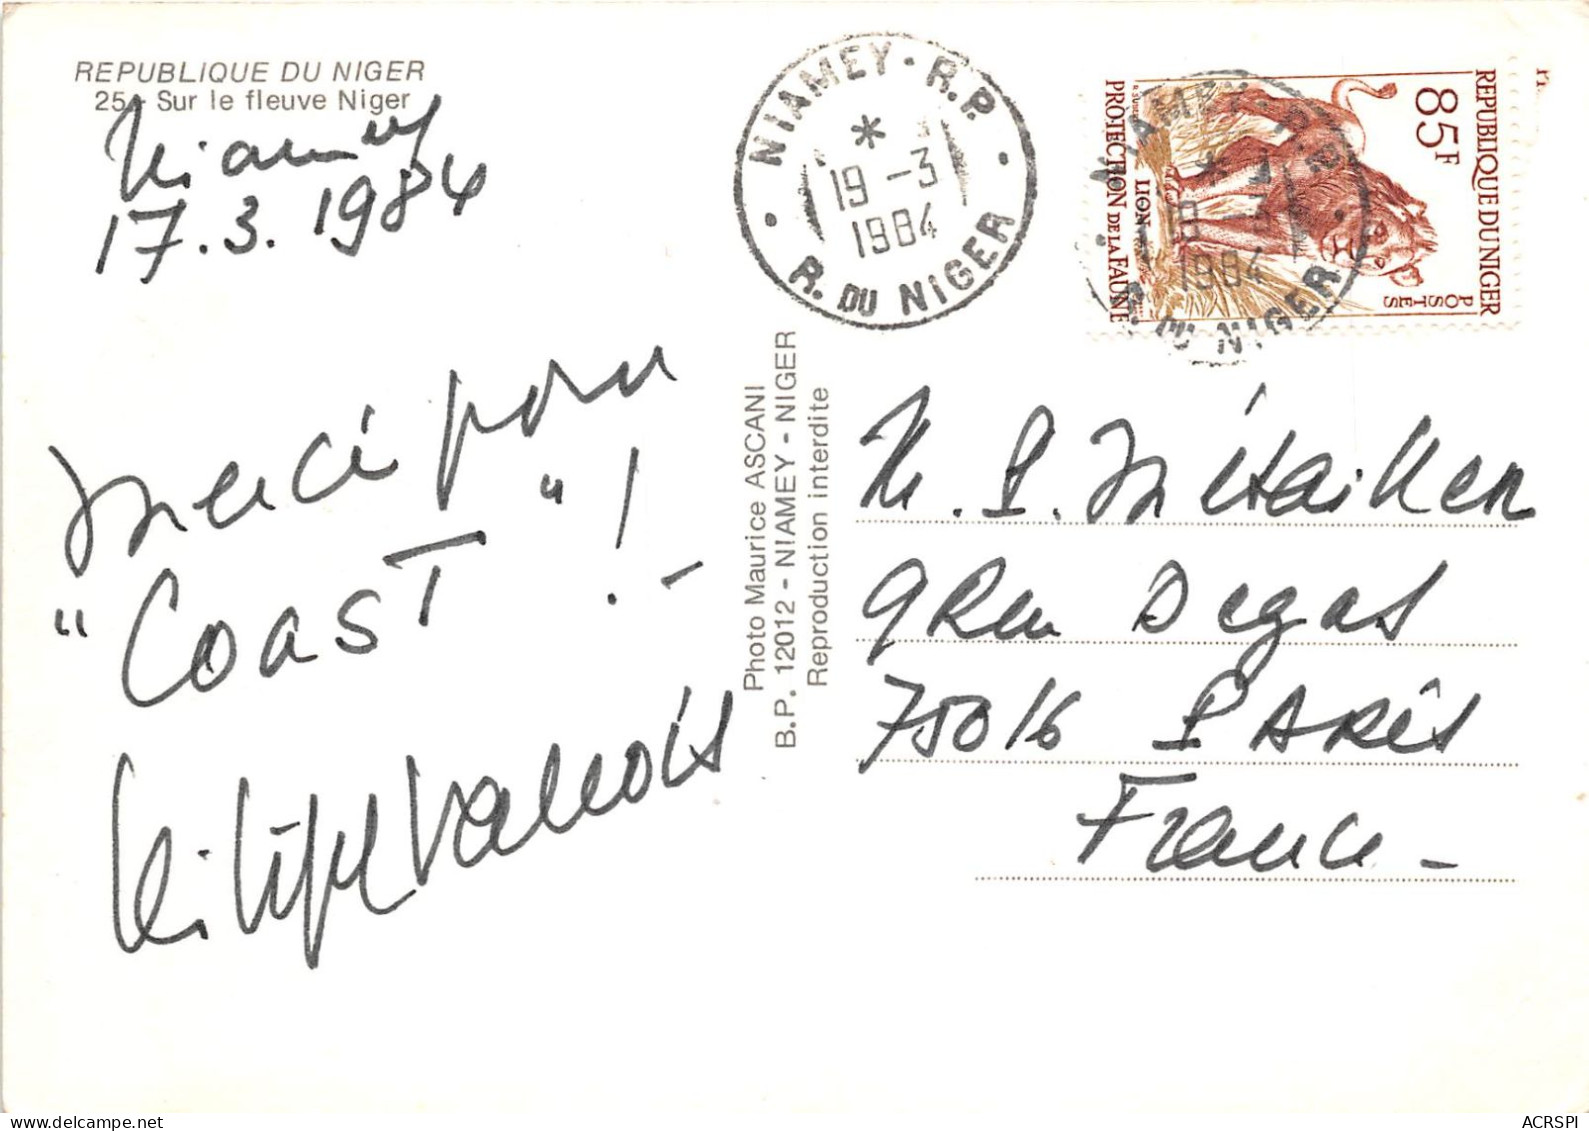 REPUBLIQUE DU NIGER
25 - Sur le fleuve Niger
Niamey
17.3.1984
Merci pour
"COAST" ! -
NIAMEY - R.P.
*
19 -3
1984
R. DU NIGER
NIAMEY - R.P.
*
19 -3
1984
R. DU NIGER
REPUBLIQUE DU NIGER
85F
POSTES
LION
PROTECTION DE LA FAUNE
Photo Maurice ASCANI
B.P. 12012 - NIAMEY - NIGER
Reproduction interdite
M. P. Métailler
9 Rue Degas
75016 PARIS
France -
delcampe.net
ACRSPI